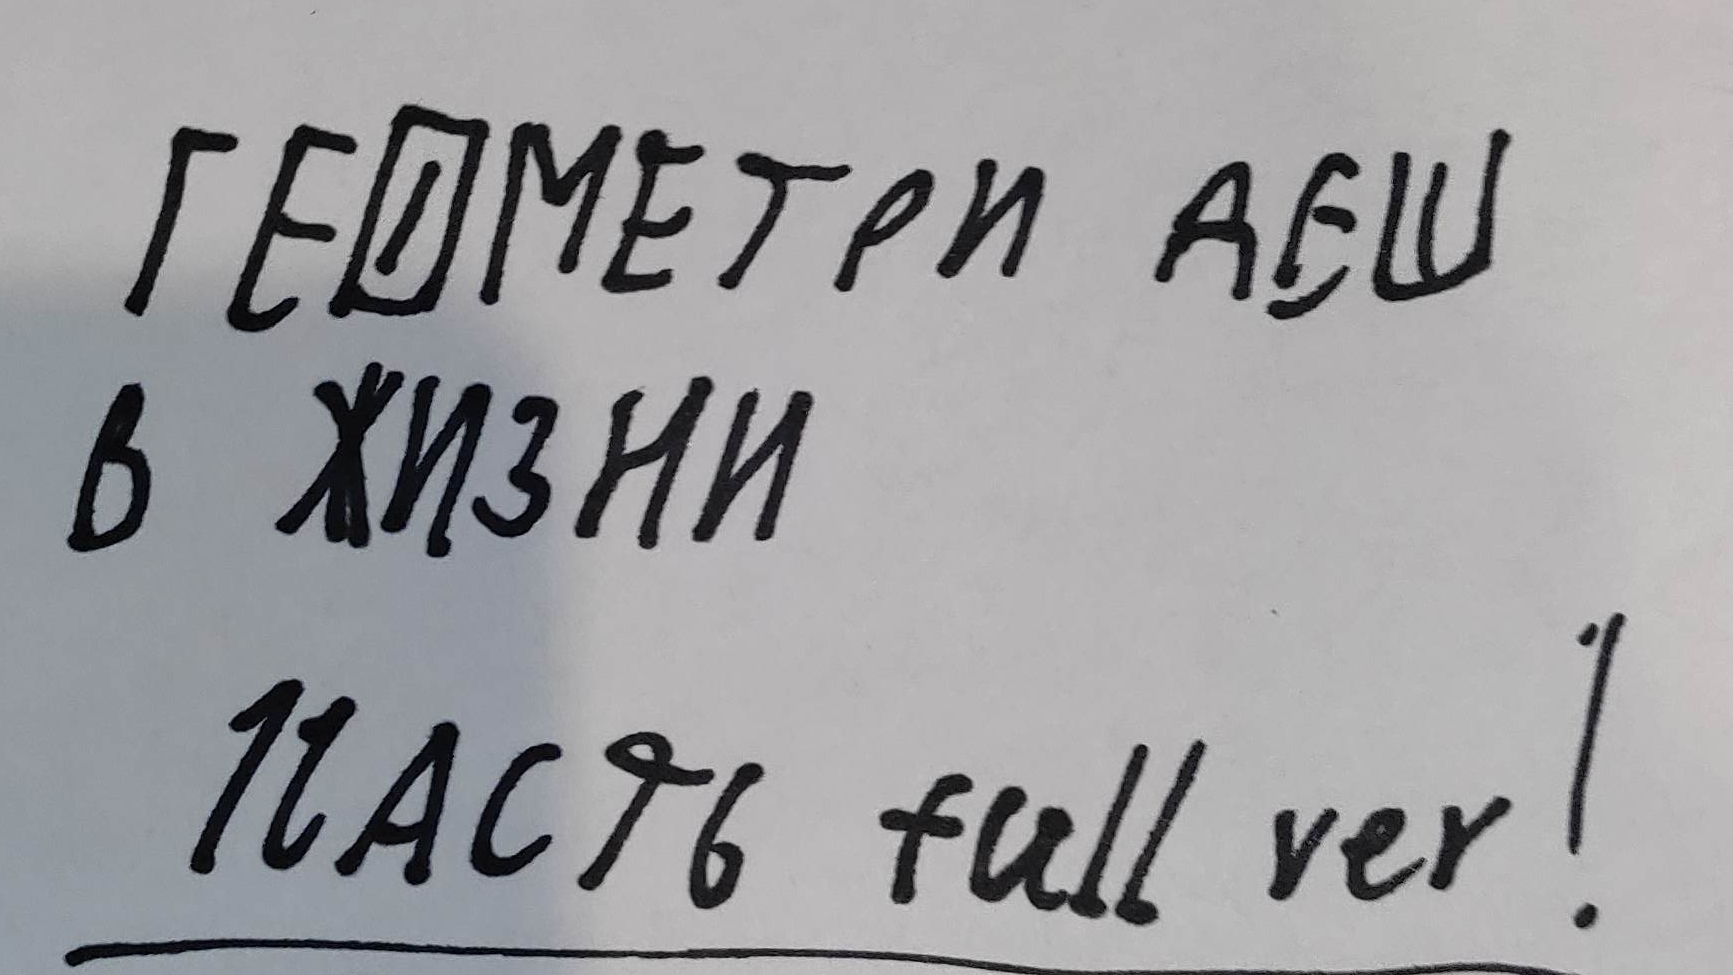 ГЕОМЕТРИ ДЕШ
В ЖИЗНИ
ПАСТЬ full ver!